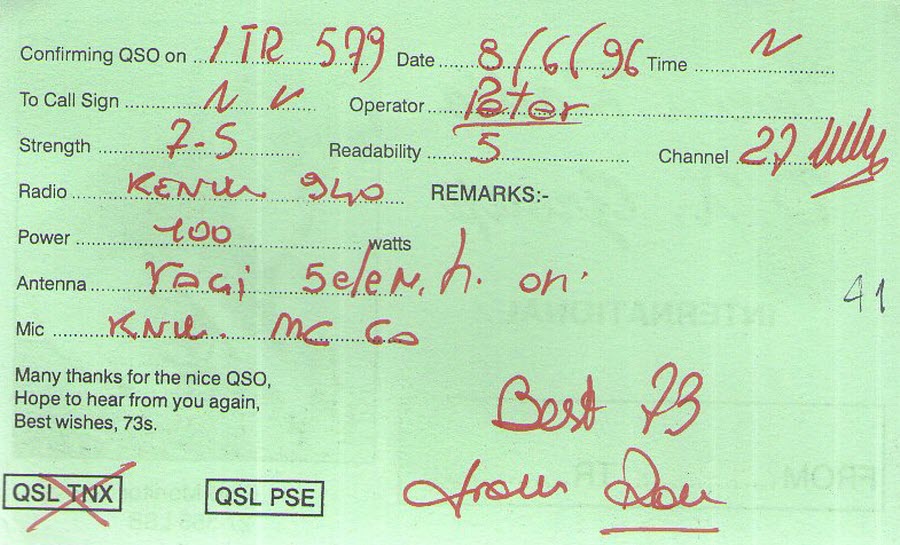 Confirming QSO on 1TR 579 Date 8/6/96 Time
To Call Sign Operator Peter
Strength 7-5 Readability 5 Channel 27
Radio 940 REMARKS:-
Power 100 watts
Antenna Yagi 5 eleM. h. on.
41
Mic MC 60
Many thanks for the nice QSO,
Hope to hear from you again,
Best wishes, 73s.
Best 73
from
QSL TNX QSL PSE